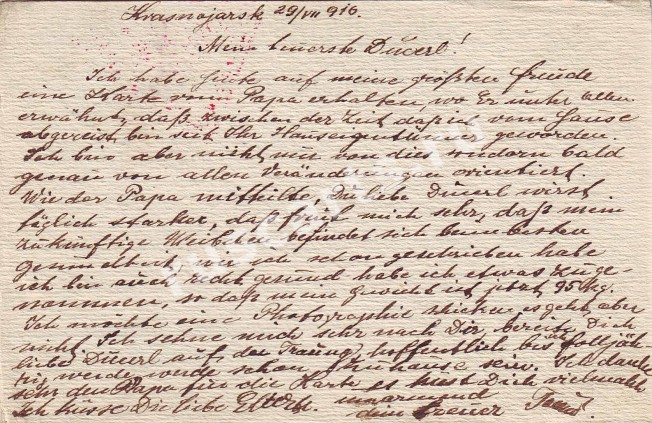 Krasnojarsk 29/VII 916.
Mein teuerste Ducerl!
Ich habe heute auf meine größten freude
eine Karte vom Papa erhalten, wo Er unter allen
erwähnt, daß zwischen der Zeit, daß ich vom Hause
abgereist bin seit Ihr Hauseigentümer geworden.
Ich bin aber nicht nur von dies, sondern bald
genau von allen Veränderungen orientiert.
Wie der Papa mitteilte, Du liebe Ducerl wirst
täglich starker, daß freut mich sehr, daß mein
zukünftige Weibchen befindet sich beim besten
Gesundheit, wie ich schon geschrieben habe
ich bin auch recht gesund habe ich etwas zuge-
nommen, so daß mein gewicht ist jetzt 95 Kg.
Ich möchte eine Photographie schicken, es geht aber
nicht. Ich sehne mich sehr nach Dir, bereite Dich
liebe Ducerl auf der Trauung, hoffentlich bis
werden werde schon zu hause sein. Ich danke
sehr dem Papa für die Karte es küsst Dich vielmals
Ich küsse Die liebe Eltern. umarmend
dein treuer